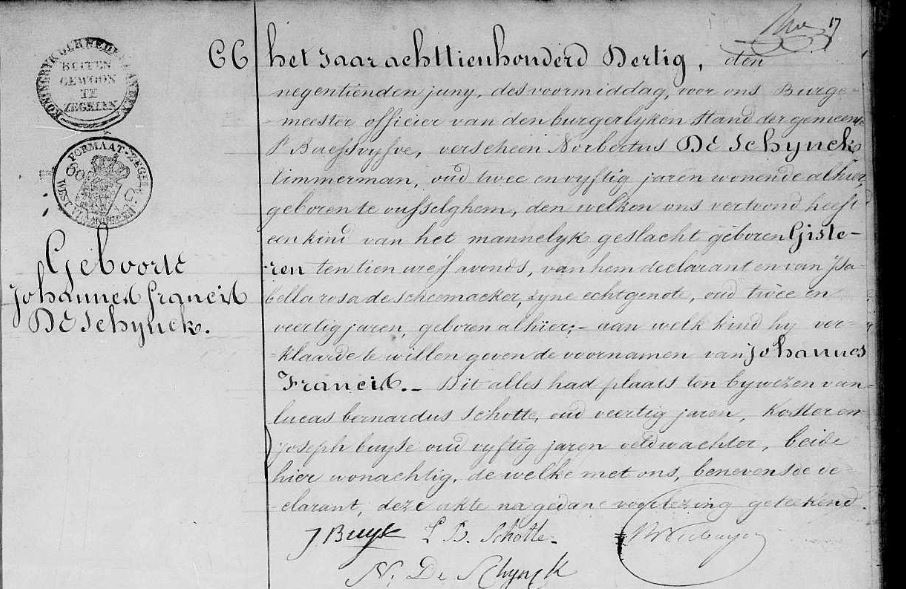 17
66
het Jaar achttienhonderd Dertig, den
negentienden juny, des voormiddag, voor ons Burge-
meester officier van den burgerlyken Stand der gemeente
Baesvyfve, verscheen Norbertus De Schynck
timmerman, oud twee en vyftig jaren wonende alhier,
geboren te ousselghem, den welken ons vertoond heeft
een kind van het mannelyk geslacht geboren Giste-
ren ten tien uren s'avonds, van hem declarant en van Isa-
bella rosa de scheemacker, zyne echtgenote, oud twee en
veertig jaren, geboren alhier; aan welk kind hy ver-
klaarde te willen geven de voornamen van Johannes
Francis. Dit alles had plaats ten bywezen van
lucas bernardus schotte, oud veertig jaren, Koster en
joseph buyse oud vyftig jaren veldwachter, beide
hier wonachtig, de welke met ons, benevens de de-
clarant, deze akte na gedane voorlezing geteekend.
J Buyse L B. Schotte
N. De Schynck
KONINGRYK DER NEDERLANDEN
BUITEN
GEWOON
TE
ZEGELEN
FORMAAT-ZEGEL
WEST VLAANDEREN
Geboorte
Johannes francis
De Schynck.